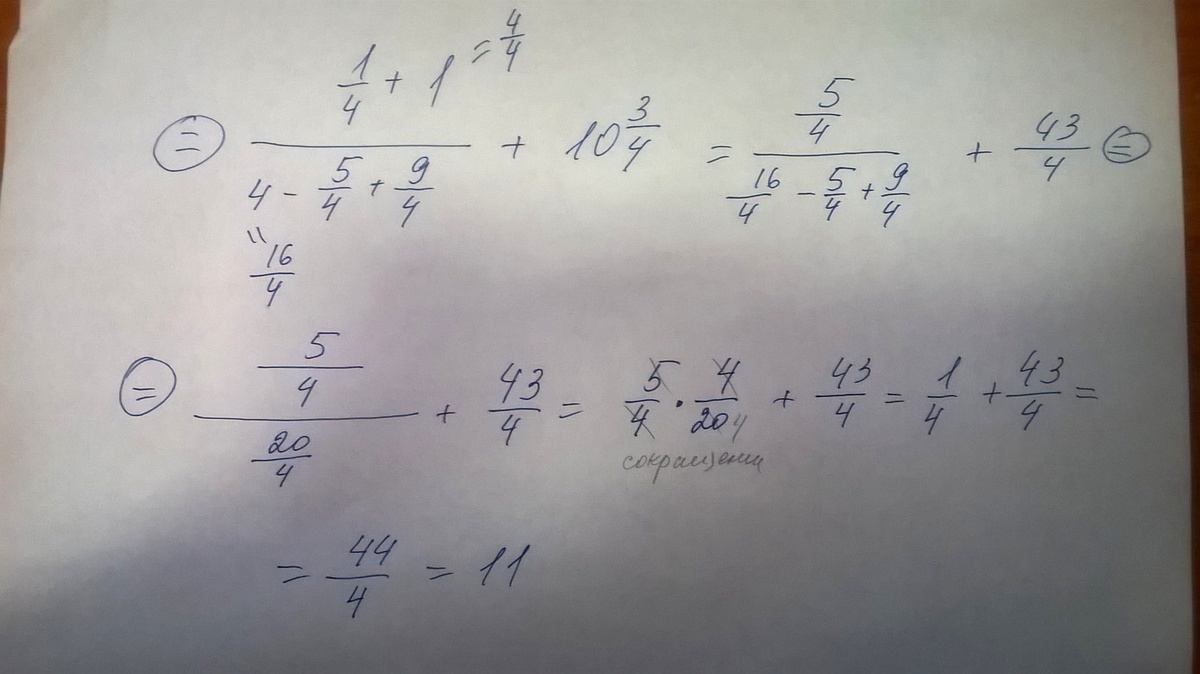 = (1/4 + 1 = 4/4) / (4 - 5/4 + 9/4) + 10 3/4 = (5/4) / (16/4 - 5/4 + 9/4) + 43/4 =
" 16/4
= (5/4) / (20/4) + 43/4 = 5/4 · 4/20 4 + 43/4 = 1/4 + 43/4 =
сокращении
= 44/4 = 11